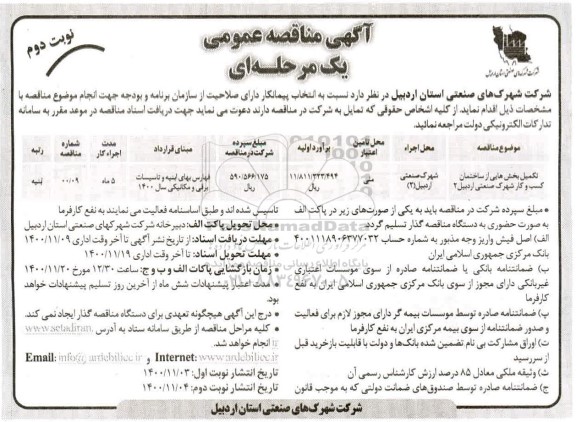 آگهی مناقصه عمومی
یک مرحله‌ای
نوبت دوم
شرکت شهرک‌های صنعتی استان اردبیل در نظر دارد نسبت به انتخاب پیمانکار دارای صلاحیت از سازمان برنامه و بودجه جهت انجام موضوع مناقصه با
مشخصات ذیل اقدام نماید. از کلیه اشخاص حقوقی که تمایل به شرکت در مناقصه دارند دعوت می نماید جهت دریافت اسناد مناقصه در موعد مقرر به سامانه
تدارکات الکترونیکی دولت مراجعه نمائید.
موضوع مناقصه | محل اجراء | محل تامین اعتبار | برآورد اولیه | مبلغ سپرده شرکت در مناقصه | مبنای قرارداد | مدت اجراء کار | شماره مناقصه | رتبه
تکمیل بخش هایی از ساختمان کسب و کار شهرک صنعتی اردبیل۲ | شهرک صنعتی اردبیل(۲) | ۱۱/۸۱۱/۳۲۳/۴۹۴ ریال | ۵۹۰/۵۶۶/۱۷۵ ریال | فهارس بهای ابنیه و تاسیسات برقی و مکانیکی سال ۱۴۰۰ | ۵ ماه | ۰۰/۰۹ | ابنیه
• مبلغ سپرده شرکت در مناقصه باید به یکی از صورت‌های زیر در پاکت الف
به صورت حضوری به دستگاه مناقصه گذار تسلیم گردد
الف) اصل فیش واریز وجه مذبور به شماره حساب ۴۰۰۱۱۱۸۹۰۶۳۷۷۰۳۲
بانک مرکزی جمهوری اسلامی ایران
ب) ضمانتنامه بانکی یا ضمانتنامه صادره از سوی موسسات اعتباری
غیربانکی دارای مجوز از سوی بانک مرکزی جمهوری اسلامی ایران به نفع
کارفرما
پ) ضمانتنامه صادره توسط موسسات بیمه گر دارای مجوز لازم برای فعالیت
و صدور ضمانتنامه از سوی بیمه مرکزی ایران به نفع کارفرما
ت) اوراق مشارکت بی نام تضمین شده بانک‌ها و دولت با قابلیت بازخرید قبل
از سررسید
ث) وثیقه ملکی معادل ۸۵ درصد ارزش کارشناس رسمی آن
ج) ضمانتنامه صادره توسط صندوق‌های ضمانت دولتی که به موجب قانون
تاسیس شده اند و طبق اساسنامه فعالیت می نمایند به نفع کارفرما
• محل تحویل پاکت الف: دبیرخانه شرکت شهرکهای صنعتی استان اردبیل
• مهلت دریافت اسناد: از تاریخ نشر آگهی تا آخر وقت اداری ۱۴۰۰/۱۱/۰۹
• مهلت تحویل اسناد: تا آخر وقت اداری ۱۴۰۰/۱۱/۱۹
• زمان بازگشایی پاکات الف و ب و ج: ساعت ۱۲/۳۰ مورخ ۱۴۰۰/۱۱/۲۰
• مدت اعتبار پیشنهادات شش ماه از آخرین روز تسلیم پیشنهادات خواهد
بود.
• درج این آگهی هیچگونه تعهدی برای دستگاه مناقصه گذار ایجاد نمی کند.
• کلیه مراحل مناقصه از طریق سامانه ستاد به آدرس www.setadiran.
ir انجام خواهد شد.
Email: info@ardebiliec.ir و Internet: www.ardebiliec.ir
تاریخ انتشار نوبت اول: ۱۴۰۰/۱۱/۰۳
تاریخ انتشار نوبت دوم: ۱۴۰۰/۱۱/۰۴
شرکت شهرک‌های صنعتی استان اردبیل